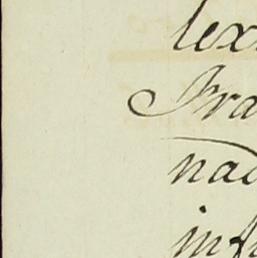 lex
Fra
nad
inf